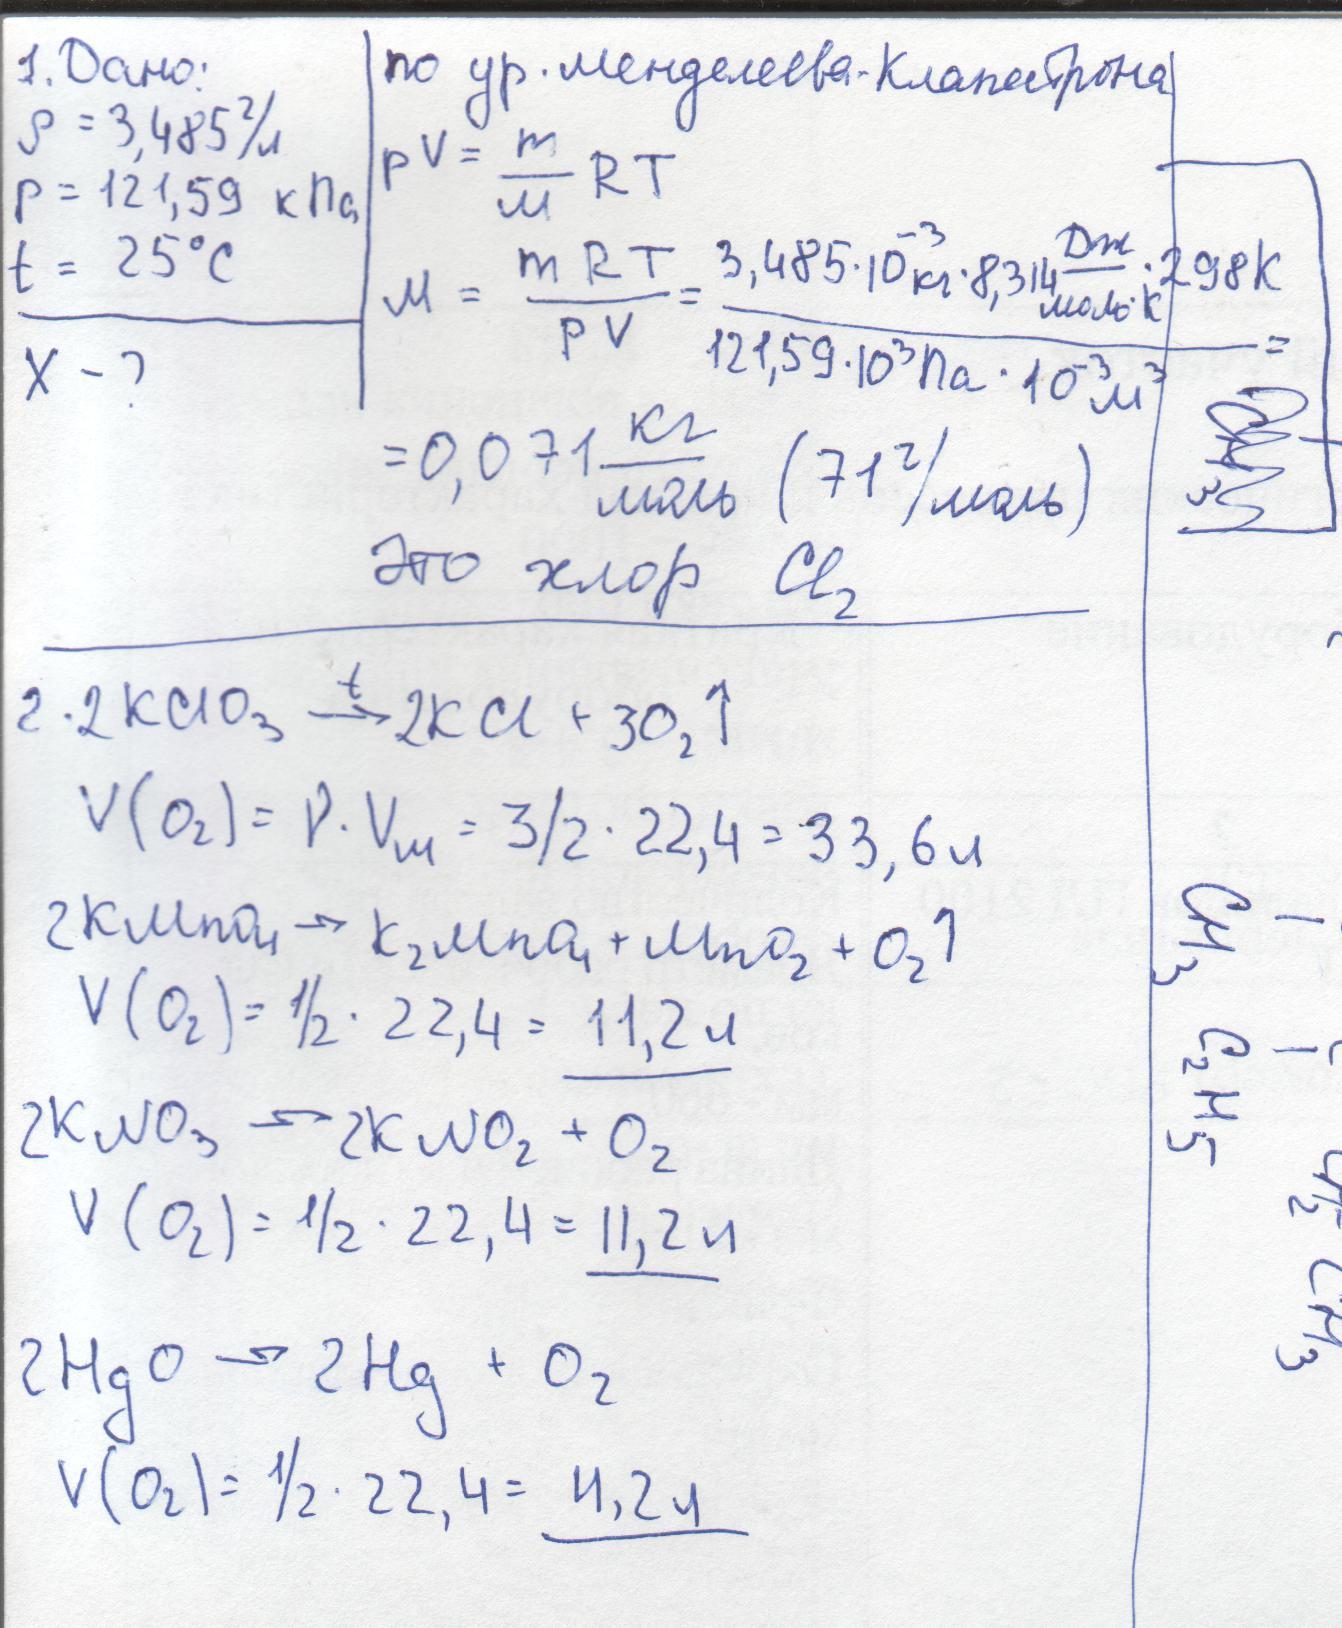 1. Дано:
ρ = 3,485 г/л
p = 121,59 кПа
t = 25°C
X - ?
по ур. Менделеева-Клапейрона
pV = m/M RT
M = mRT/pV = 3,485·10⁻³кг·8,314 Дж/моль·К·298К / 121,59·10³Па·10⁻³м³ =
= 0,071 кг/моль (71 г/моль)
Это хлор Cl₂
2. 2KClO₃ →t 2KCl + 3O₂↑
V(O₂) = ν·Vm = 3/2·22,4 = 33,6л
2KMnO₄ → K₂MnO₄ + MnO₂ + O₂↑
V(O₂) = 1/2·22,4 = 11,2л
2KNO₃ → 2KNO₂ + O₂
V(O₂) = 1/2·22,4 = 11,2л
2HgO → 2Hg + O₂
V(O₂) = 1/2·22,4 = 11,2л
CH₃
C₂H₅
CH₃